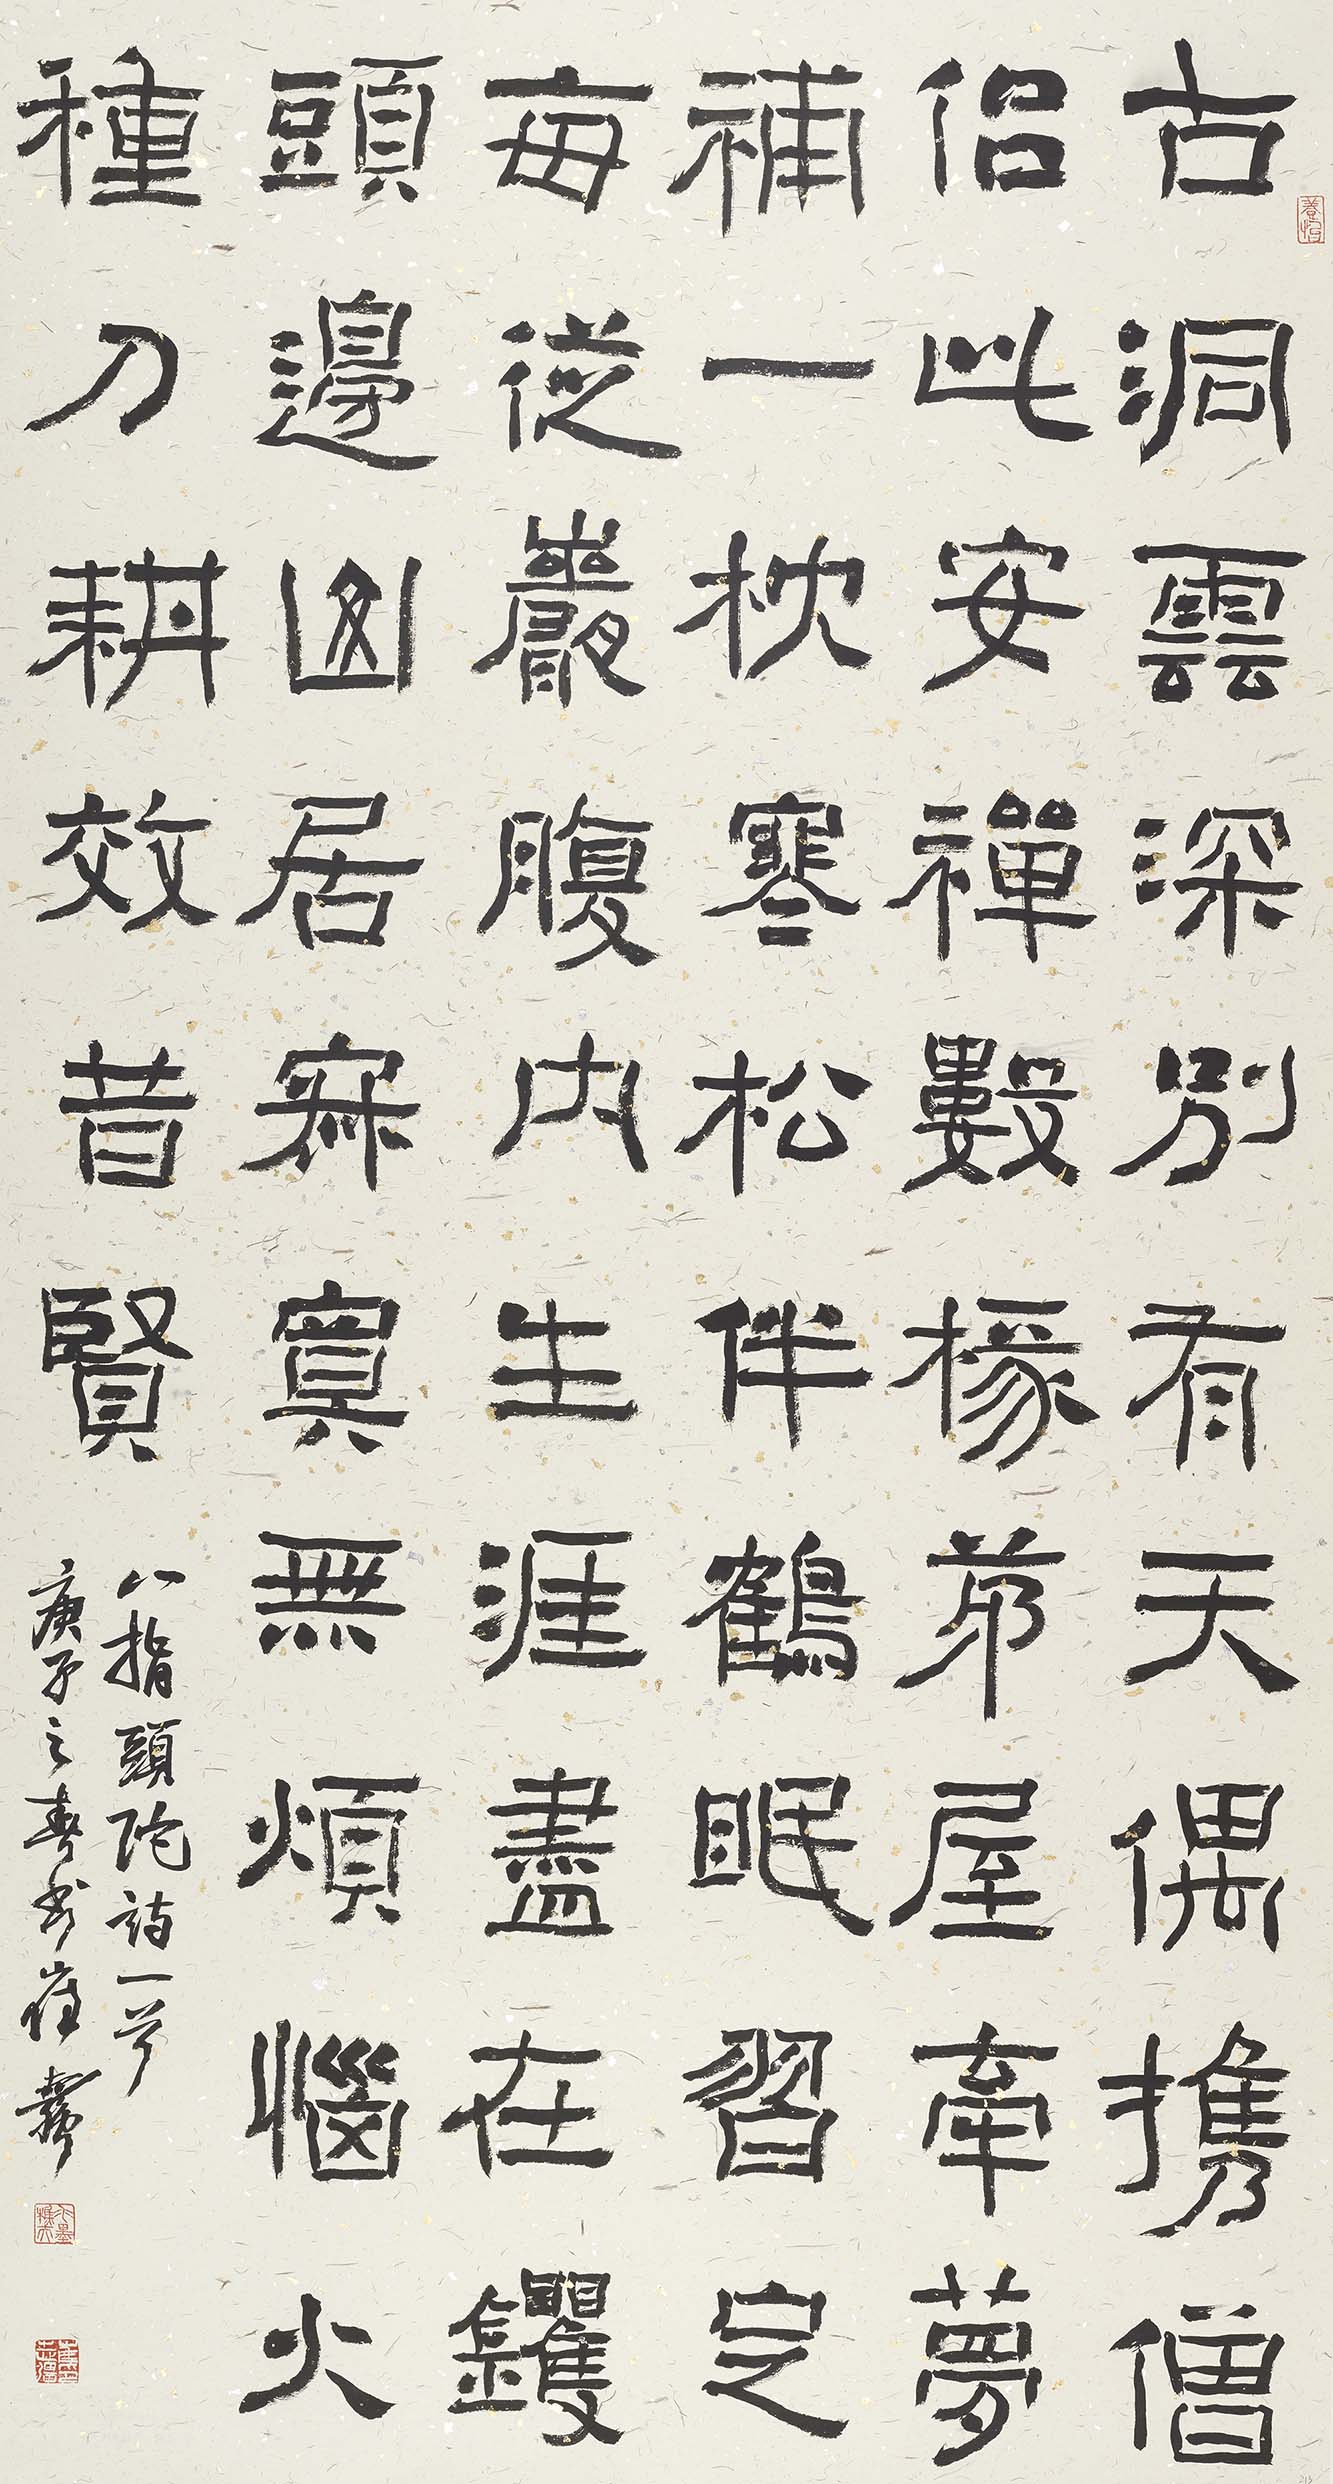 古洞雲深別有天偶攜僧
侣此安禪數椽茅屋牽夢
補一枕寒松伴鶴眠習定
每從巖腹内生涯盡在钁
頭邊山居寂寞無煩惱火
種刀耕效昔賢
八指頭陀詩一首
庚子之春書崔寒柏